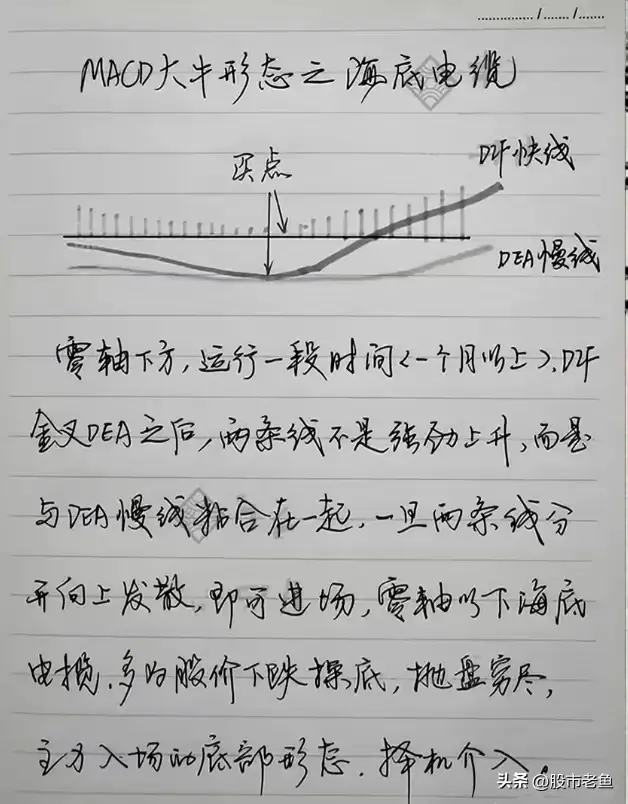 MACD大牛形态之海底电缆
买点
DIF快线
DEA慢线
零轴下方,运行一段时间<一个月以上>.DIF
金叉DEA之后,两条线不是强劲上升,而是
与DEA慢线粘合在一起,一旦两条线分
开向上发散,即可进场,零轴以下海底
电揽.多为股价下跌探底,抛盘穷尽,
主力入场的底部形态.择机介入.
头条 @股市老鱼